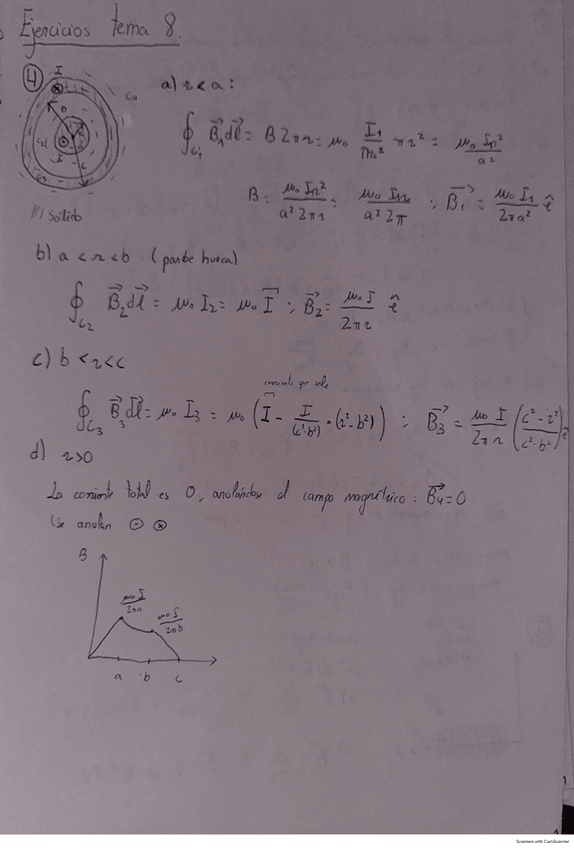 Ejercicios tema 8.
4) I
Cu
a) r<a:
∮_{C1} B⃗₁ dl⃗ = B 2πr = μ₀ I/(πa²) πr² = μ₀ I r²/a²
B = μ₀ I r²/(a² 2πr) = μ₀ I r/(a² 2π) ; B⃗₁ = μ₀ I r/(2πa²) ê
/// Sólido
b) a < r < b (parte hueca)
∮_{C2} B⃗₂ dl⃗ = μ₀ I₂ = μ₀ I ; B⃗₂ = μ₀ I/(2πr) ê
c) b < r < c
corriente que sale
∮_{C3} B⃗₃ dl⃗ = μ₀ I₃ = μ₀ (I - I/(c²-b²) · (r²-b²)) ; B⃗₃ = μ₀ I/(2πr) ((c²-r²)/(c²-b²)) ê
d) r>0
La corriente total es 0, anulándose el campo magnético: B⃗₄=0
(Se anulan ⊙ ⊗
B
μ₀ I/(2πa)
μ₀ I/(2πb)
a b c
Scanned with CamScanner